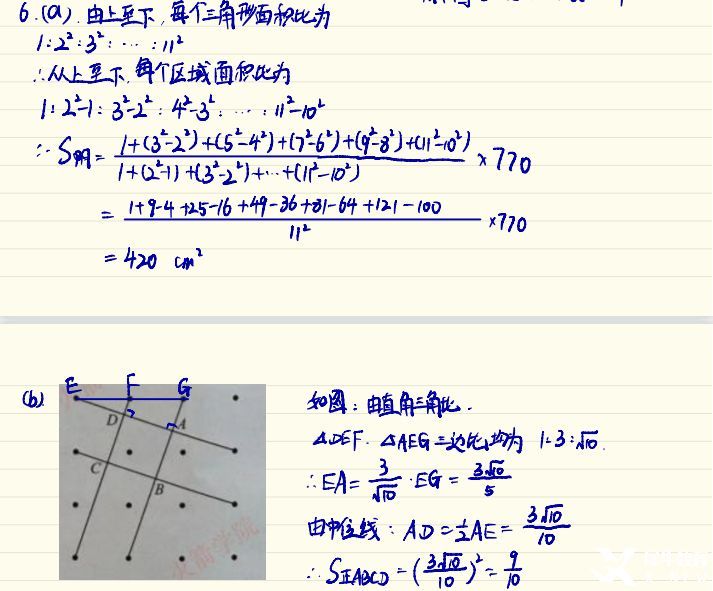 6.(a).由上至下,每个三角形面积比为
1:2²:3²:……:11²
∴从上至下,每个区域面积比为
1:2²-1:3²-2²:4²-3²:……:11²-10²
∴S阴=\frac{1+(3²-2²)+(5²-4²)+(7²-6²)+(9²-8²)+(11²-10²)}{1+(2²-1)+(3²-2²)+…+(11²-10²)}×770
=\frac{1+9-4+25-16+49-36+81-64+121-100}{11²}×770
=420 cm²
(b)
E F G
D A
C B
火箭学院
如图:由直角三角比.
△DEF.△AEG三边比均为 1:3:√10.
∴EA=\frac{3}{√10}·EG=\frac{3√10}{5}
由中位线:AD=\frac{1}{2}AE=\frac{3√10}{10}
∴S正ABCD=(\frac{3√10}{10})²=\frac{9}{10}